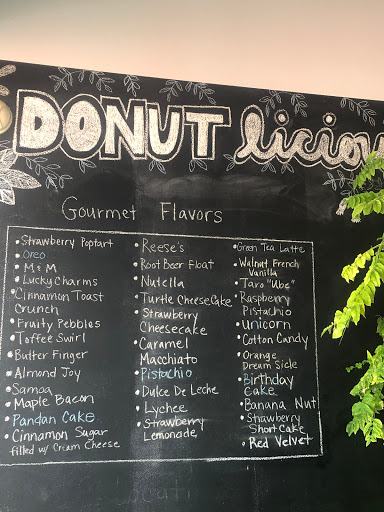 DONUT licious
Gourmet Flavors
Strawberry Poptart
Oreo
M & M
Lucky Charms
Cinnamon Toast
Crunch
Fruity Pebbles
Toffee Swirl
Butter Finger
Almond Joy
Samoa
Maple Bacon
Pandan Cake
Cinnamon Sugar
filled w/ Cream Cheese
Reese's
Root Beer Float
Nutella
Turtle Cheese Cake
Strawberry
Cheesecake
Caramel
Macchiato
Pistachio
Dulce De Leche
Lychee
Strawberry
Lemonade
Green Tea Latte
Walnut French
Vanilla
Taro "Ube"
Raspberry
Pistachio
Unicorn
Cotton Candy
Orange
Dream Sicle
Birthday
Cake
Banana Nut
Strawberry
Short Cake
Red Velvet